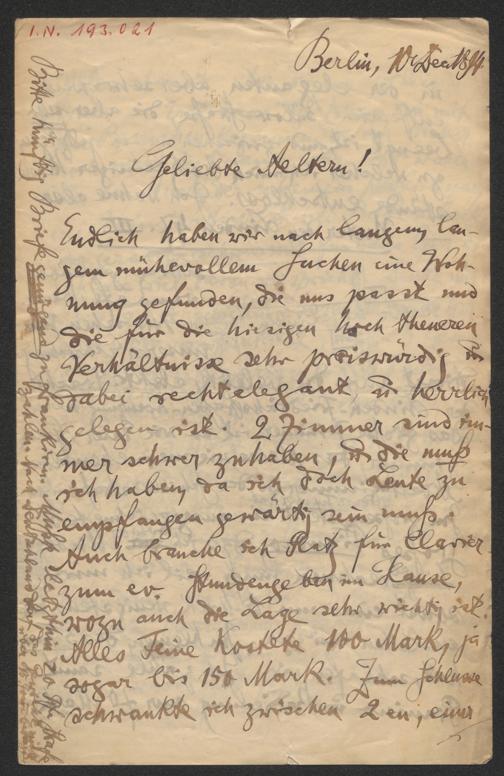 I.N. 193.021
Berlin, 10 Dec
Geliebte Aeltern!
Endlich haben wir nach langem, lan-
gem mühevollem Suchen eine Woh-
nung gefunden, die uns passt und
die für die hiesigen hoch theueren
Verhältnisse sehr preiswürdig
dabei recht elegant, u herrlich
gelegen ist. 2 Zimmer sind im-
mer schwer zu haben, u die muß
ich haben, da ich doch Leute zu
empfangen gewärtig sein muß.
Auch brauche ich Platz für Clavier
zum ev. Stundengeben im Hause,
wozu auch die Lage sehr wichtig ist.
Alles Feine kostete 100 Mark, ja
sogar bis 150 Mark. Zum Schlusse
schwankte ich zwischen 2en, einer
Bitte künftig Briefe genügend zu frankiren. Mußte